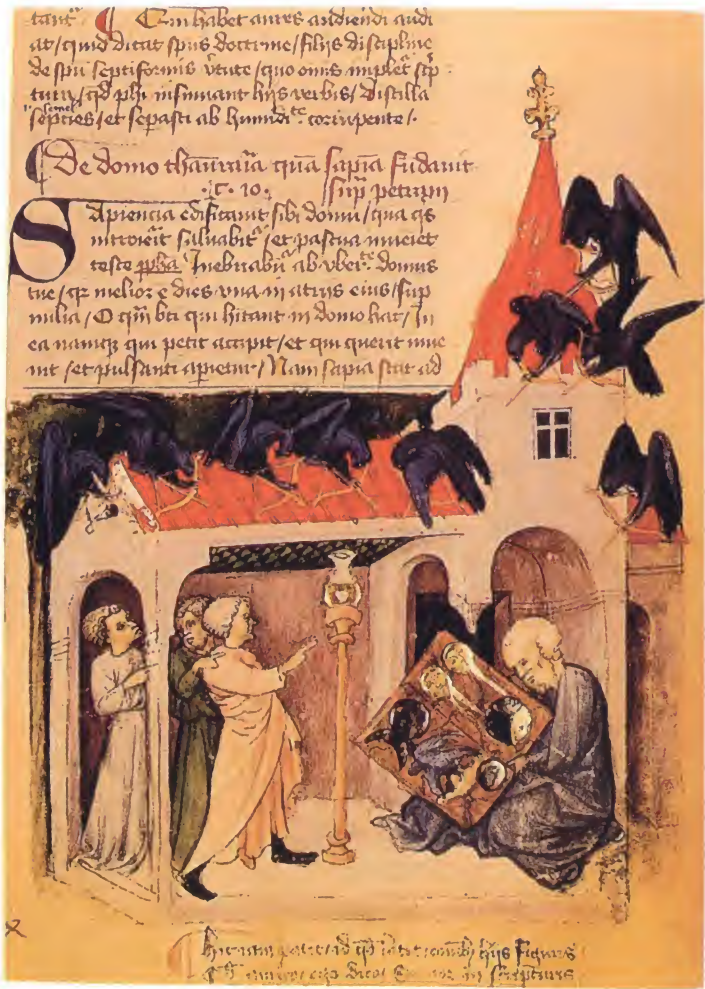 tant᷑. ¶ Qui habet aures audiendi audi
at / quid dicat spūs doctrine / filijs discipline
de spū septiformis v̾tute / quo omīs implet᷑ sc̄p
tura / qd̄ ph̄i insinuant hijs verbis / Distilla
septies / et sepasti ab humidi.te corrūpente /.
¶ De domo thaurāria quā sapīa fūdauit
.C. 10. sup̄ petram
Sapiencia edificauit sibi domū / quā q̄s
introierit saluabit᷑ / et pascua inueiet
teste ppħa Inebriabūt᷑ ab vber.te domus
tue / qr melior ē dies vna in atrijs eius / sup
milia / O qm̄ bt̄i qui hītant in domo hac / In
ea namq̨ qui petit accipit / et qui querit inue
nit / et pulsanti aperietur / Nam sapīa stat ad